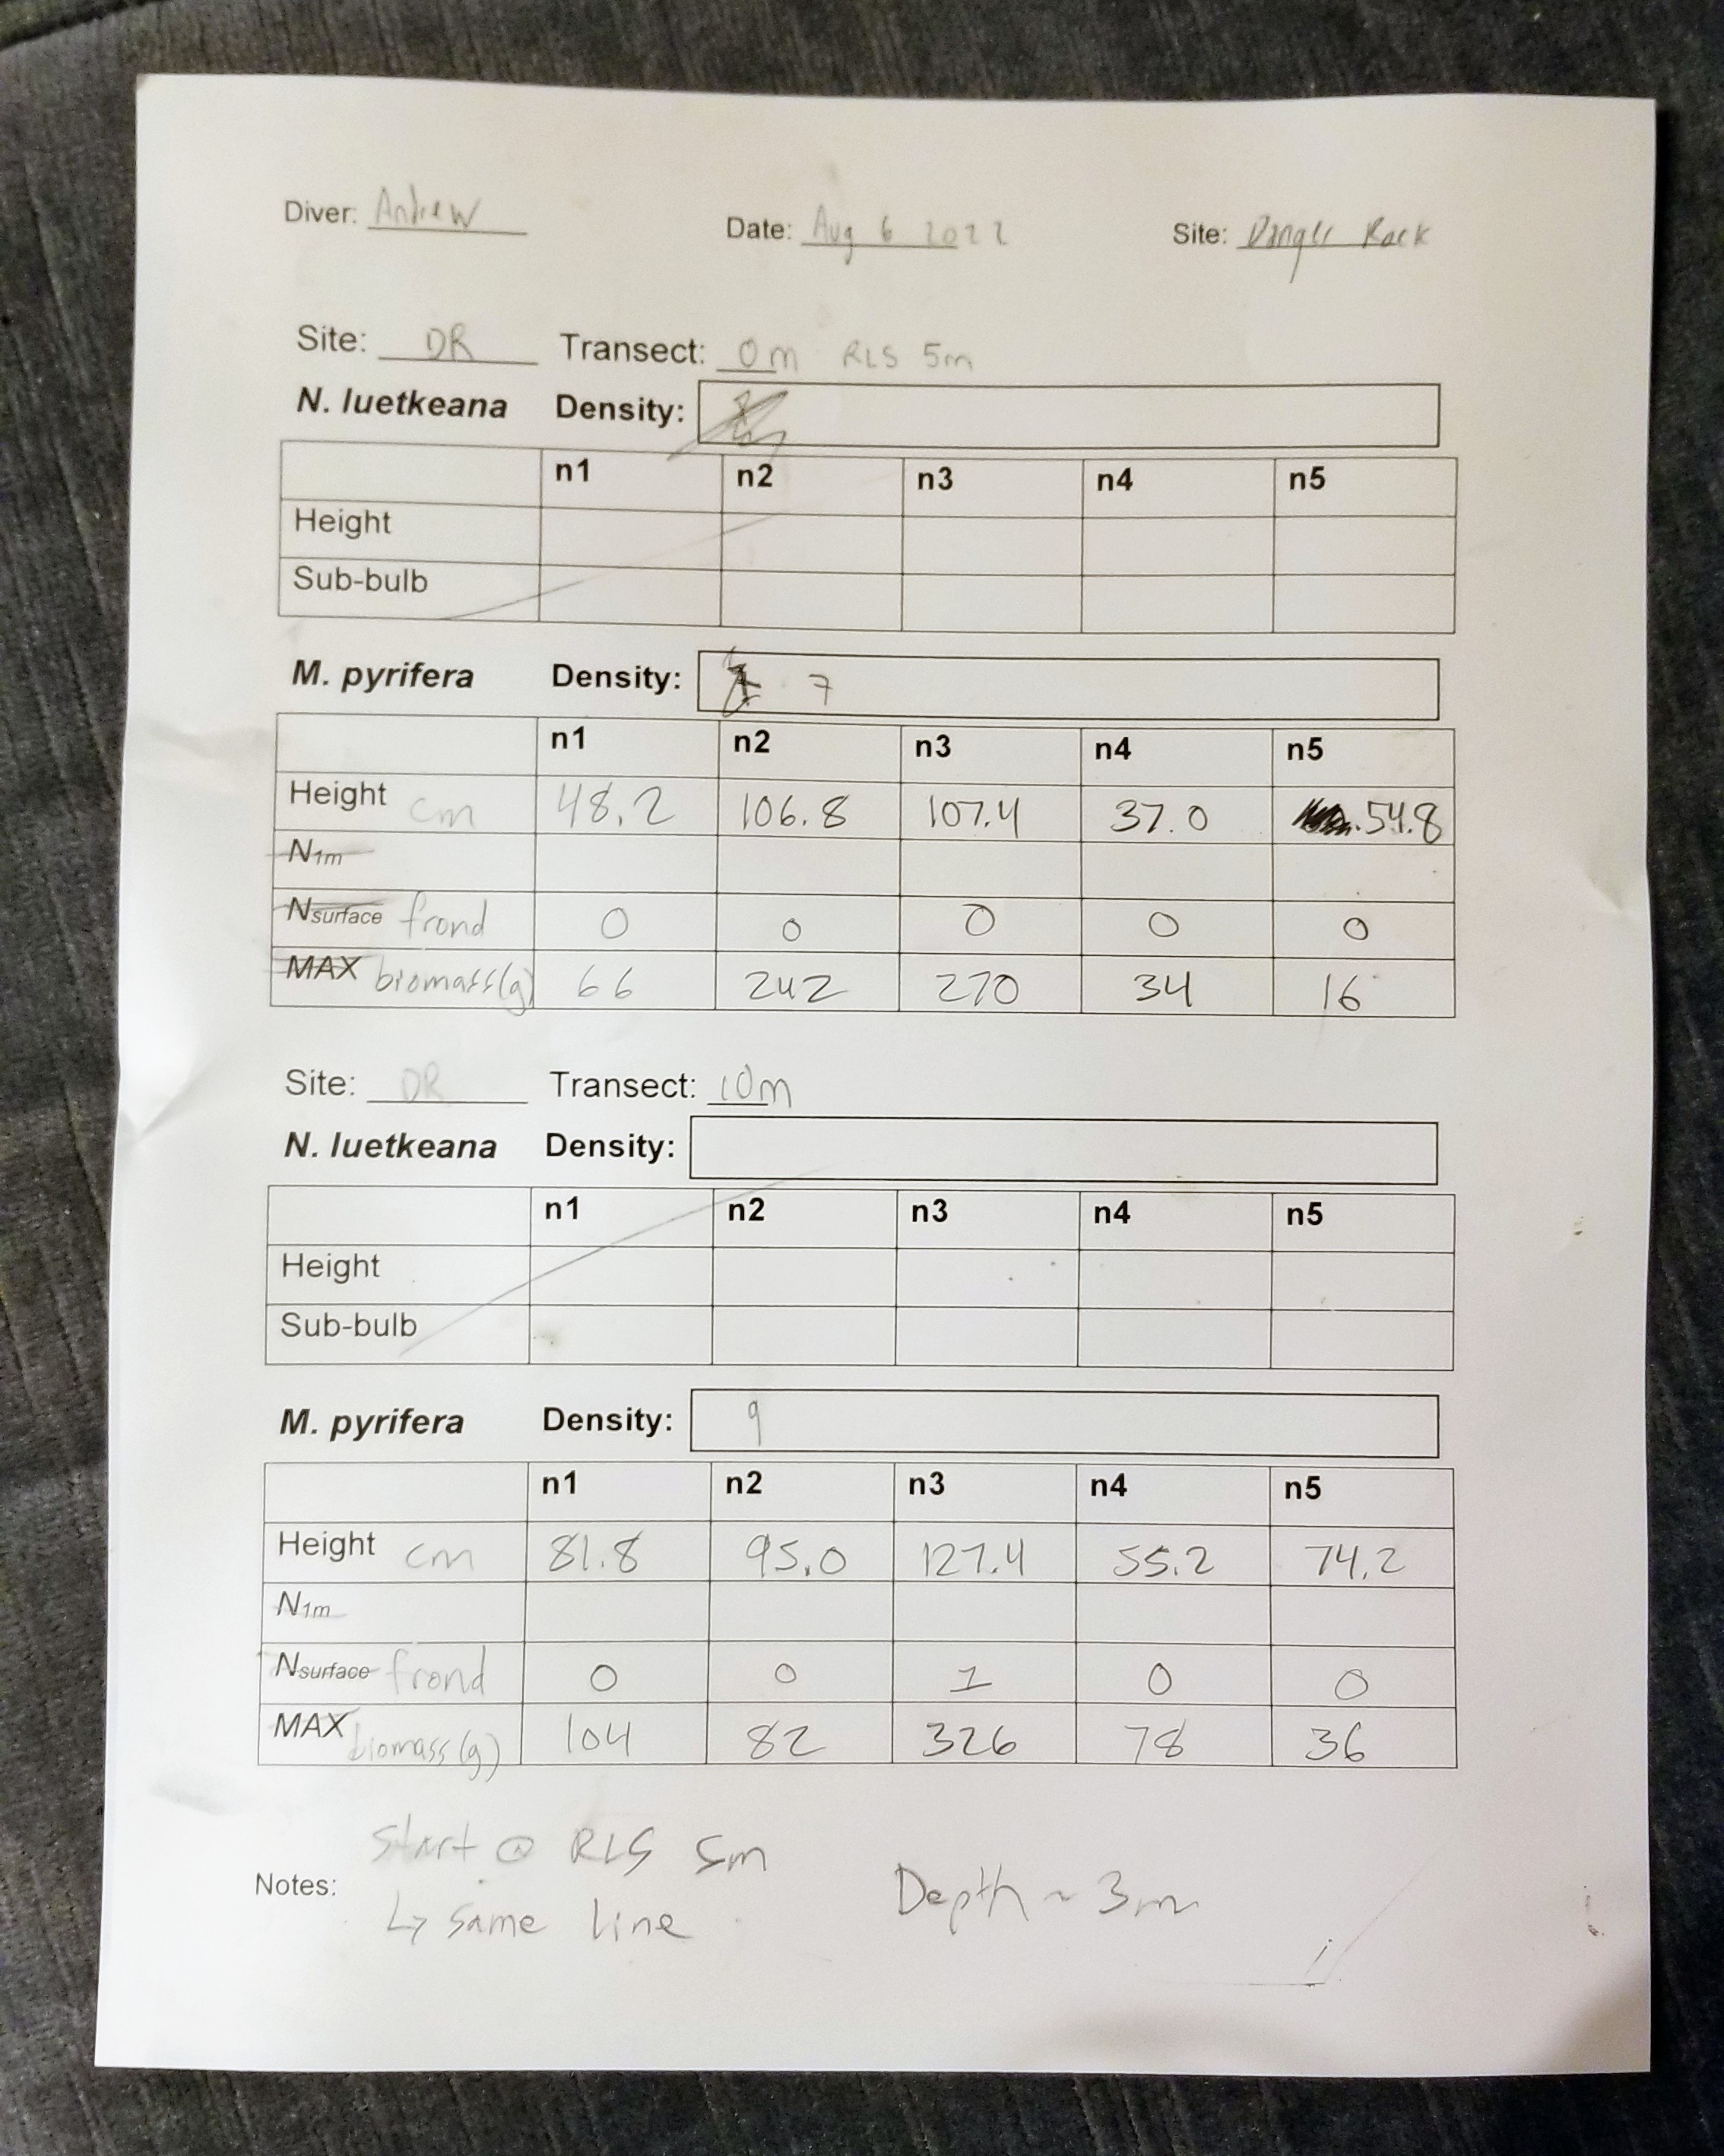 Diver: Andrew Date: Aug 6 2022 Site: Danger Rock
Site: DR Transect: 0m RLS 5m
N. luetkeana Density:
n1 n2 n3 n4 n5
Height
Sub-bulb
M. pyrifera Density: 7
n1 n2 n3 n4 n5
Height cm 48.2 106.8 107.4 37.0 54.8
N1m
Nsurface frond 0 0 0 0 0
MAX biomass(g) 66 242 270 34 16
Site: DR Transect: 10m
N. luetkeana Density:
n1 n2 n3 n4 n5
Height
Sub-bulb
M. pyrifera Density: 9
n1 n2 n3 n4 n5
Height cm 81.8 95.0 127.4 55.2 74.2
N1m
Nsurface frond 0 0 1 0 0
MAX biomass (g) 104 82 326 78 36
Start @ RLS 5m
Notes: Depth ~ 3m
↳ same line